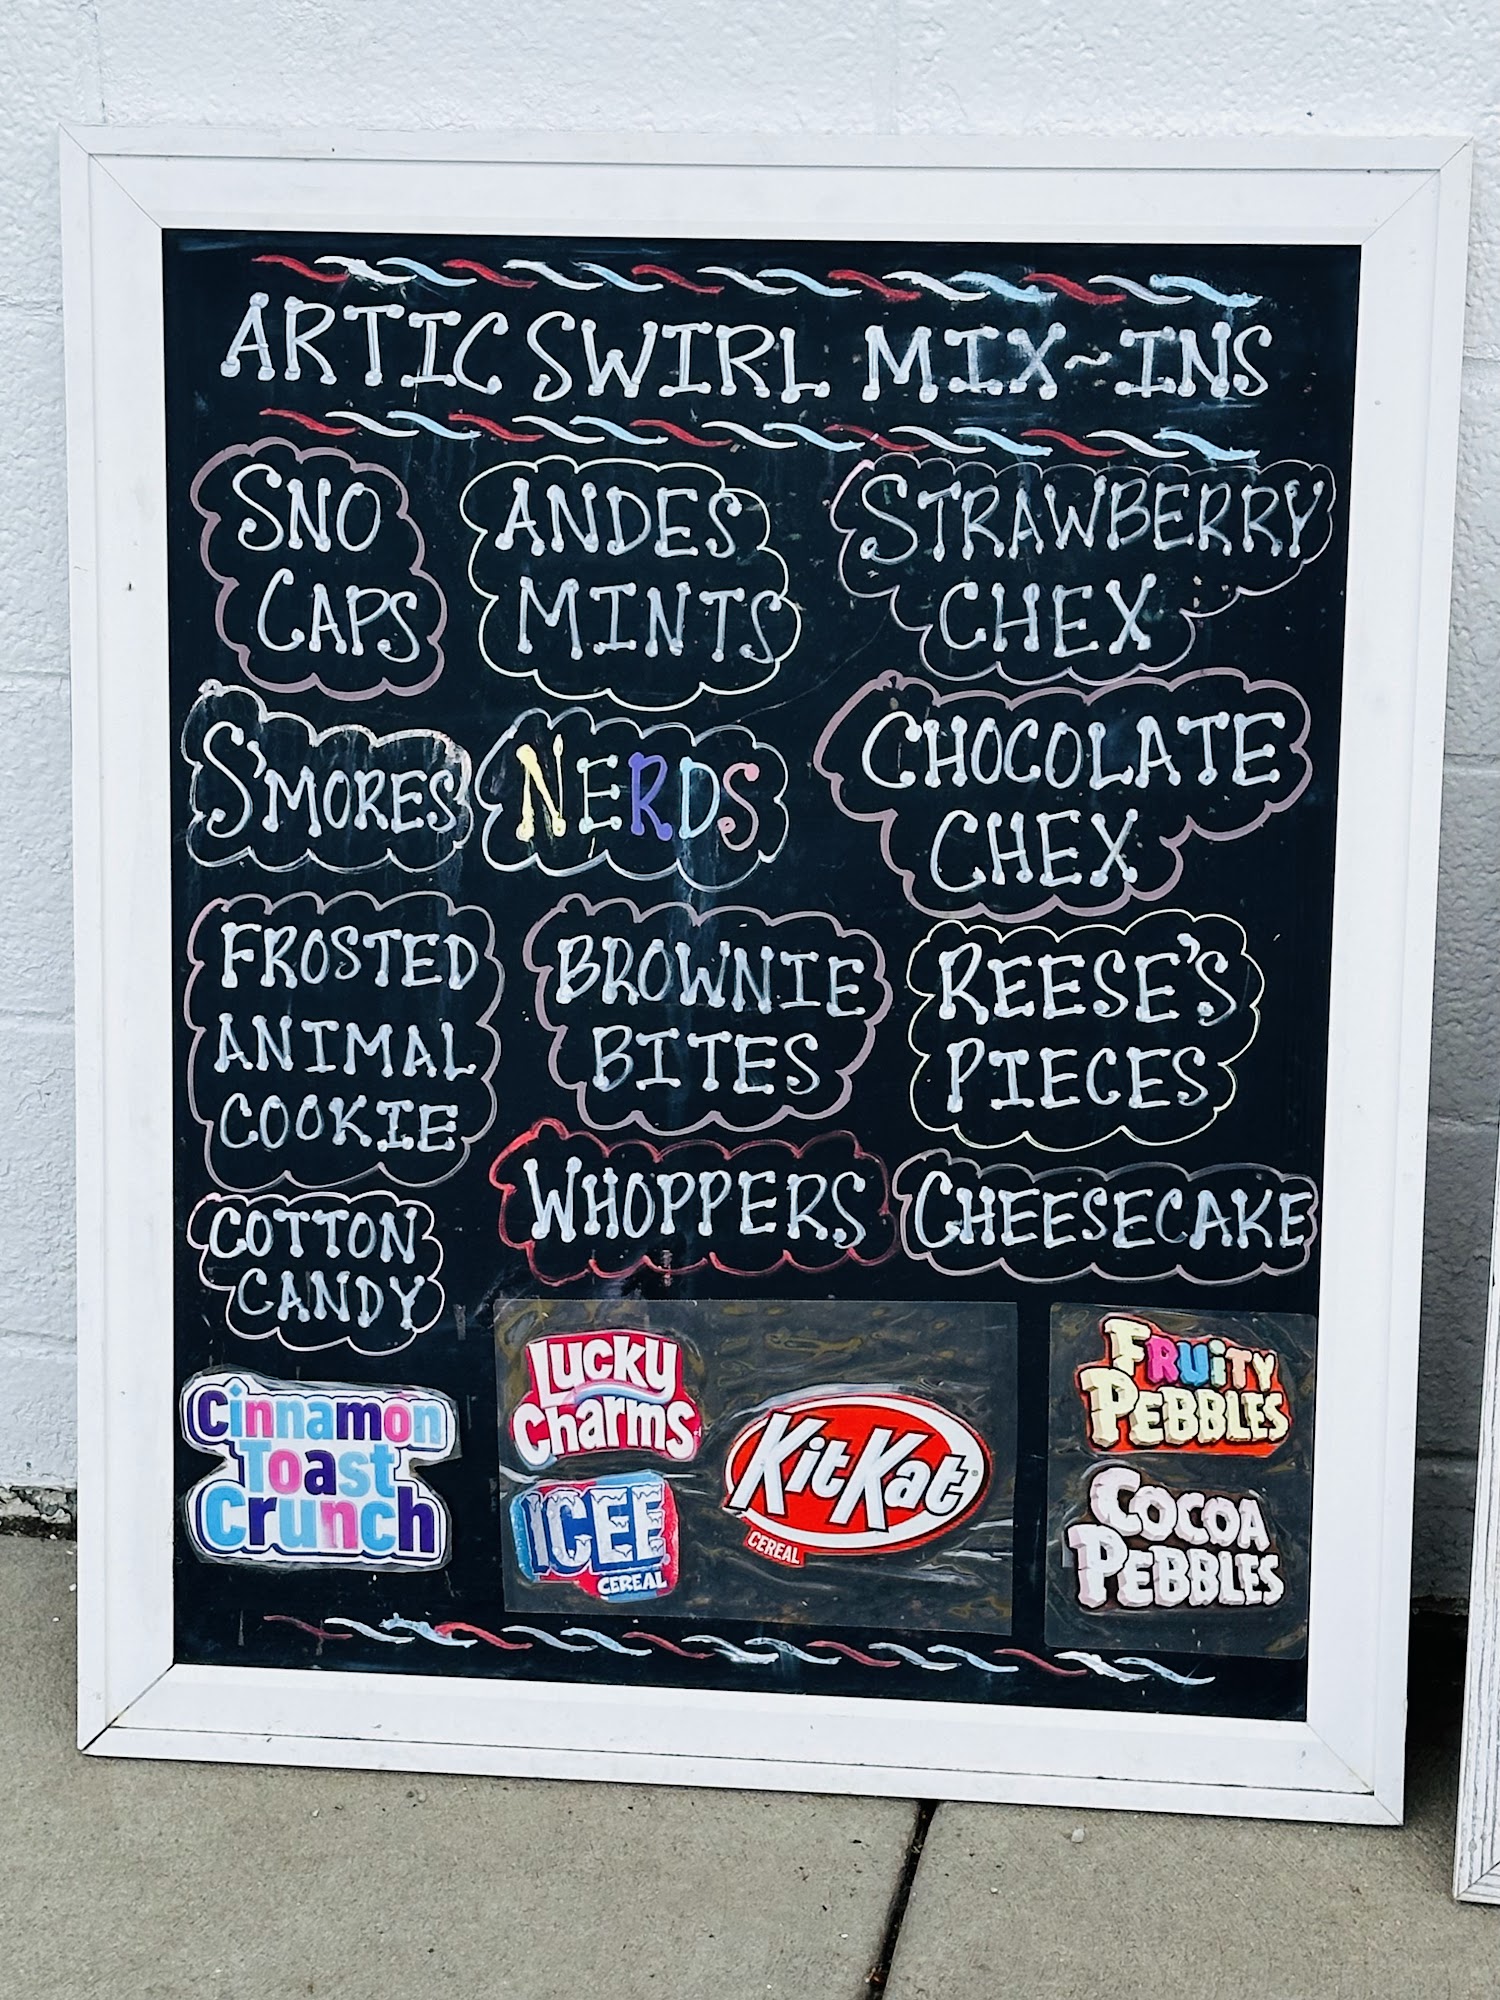 ARTIC SWIRL MIX~INS
SNO
CAPS
ANDES
MINTS
STRAWBERRY
CHEX
S'MORES
NERDS
CHOCOLATE
CHEX
FROSTED
ANIMAL
COOKIE
BROWNIE
BITES
REESE'S
PIECES
COTTON
CANDY
WHOPPERS
CHEESECAKE
Cinnamon
Toast
Crunch
LUCKY
Charms
ICEE
CEREAL
KitKat
CEREAL
FRUiTY
PEBBLES
COCOA
PEBBLES